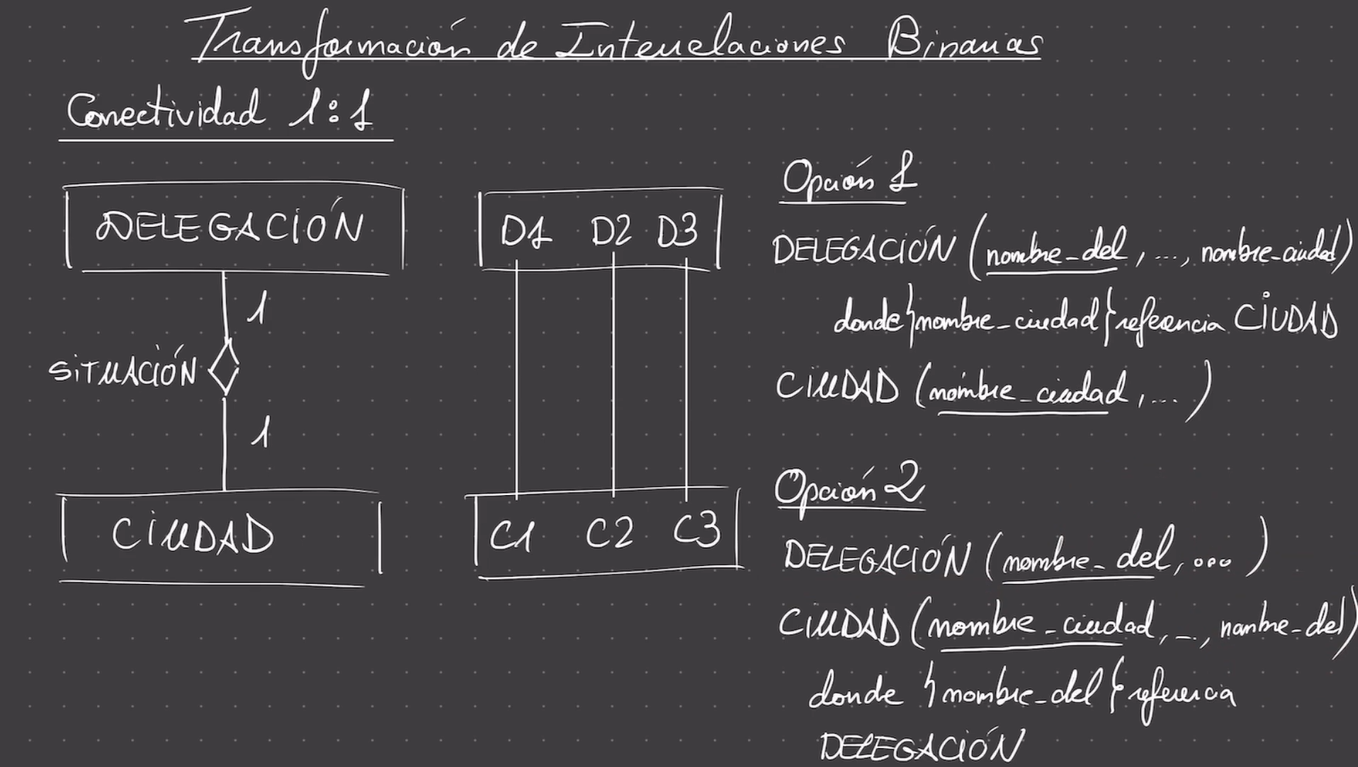 Transformación de Interrelaciones Binarias
Conectividad 1:1
DELEGACIÓN
1
SITUACIÓN
1
CIUDAD
D1 D2 D3
C1 C2 C3
Opción 1
DELEGACIÓN (nombre_del, ..., nombre_ciudad)
donde {nombre_ciudad} referencia CIUDAD
CIUDAD (nombre_ciudad, ...)
Opción 2
DELEGACIÓN (nombre_del, ...)
CIUDAD (nombre_ciudad, ..., nombre_del)
donde {nombre_del} referencia
DELEGACIÓN